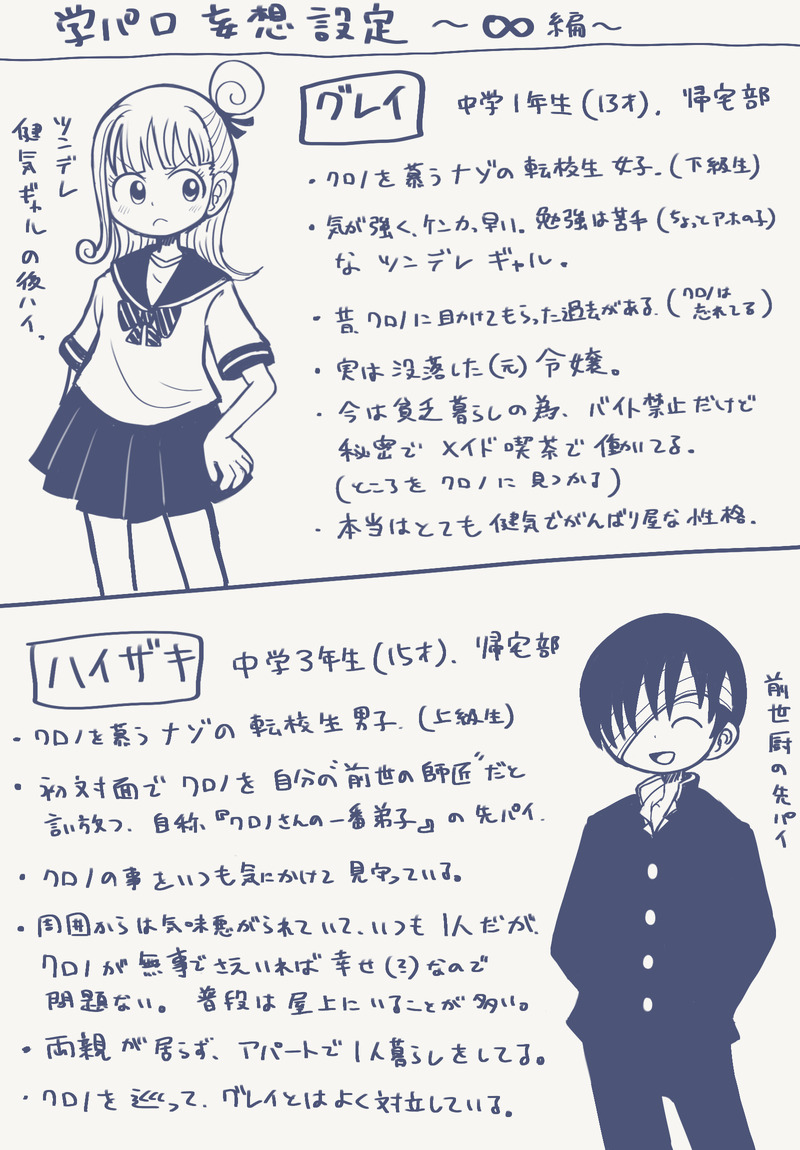 学パロ 妄想設定 〜∞編〜
ツンデレ
健気ギャルの後ハイ。
グレイ
中学1年生(13才)、帰宅部
・クロノを慕うナゾの転校生女子。(下級生)
・気が強く、ケンカっ早い。勉強は苦手(ちょっとアホの子)
な ツンデレ ギャル。
・昔、クロノに助けてもらった過去がある。(クロノは忘れてる)
・実は没落した(元)令嬢。
・今は貧乏暮らしの為、バイト禁止だけど
秘密で メイド喫茶で働いてる。
(ところを クロノに 見つかる)
・本当はとても健気でがんばり屋な性格。
ハイザキ
中学3年生(15才)、帰宅部
・クロノを慕うナゾの転校生男子。(上級生)
・初対面でクロノを自分の"前世の師匠"だと
言い放つ、自称『クロノさんの一番弟子』の先パイ。
・クロノの事をいつも気にかけて見守っている。
・周囲からは気味悪がられていて、いつも1人だが、
クロノが無事でさえいれば幸せ(?)なので
問題ない。 普段は屋上にいることが多い。
・両親が居らず、アパートで1人暮らしをしてる。
・クロノを巡って、グレイとはよく対立している。
前世厨の先パイ